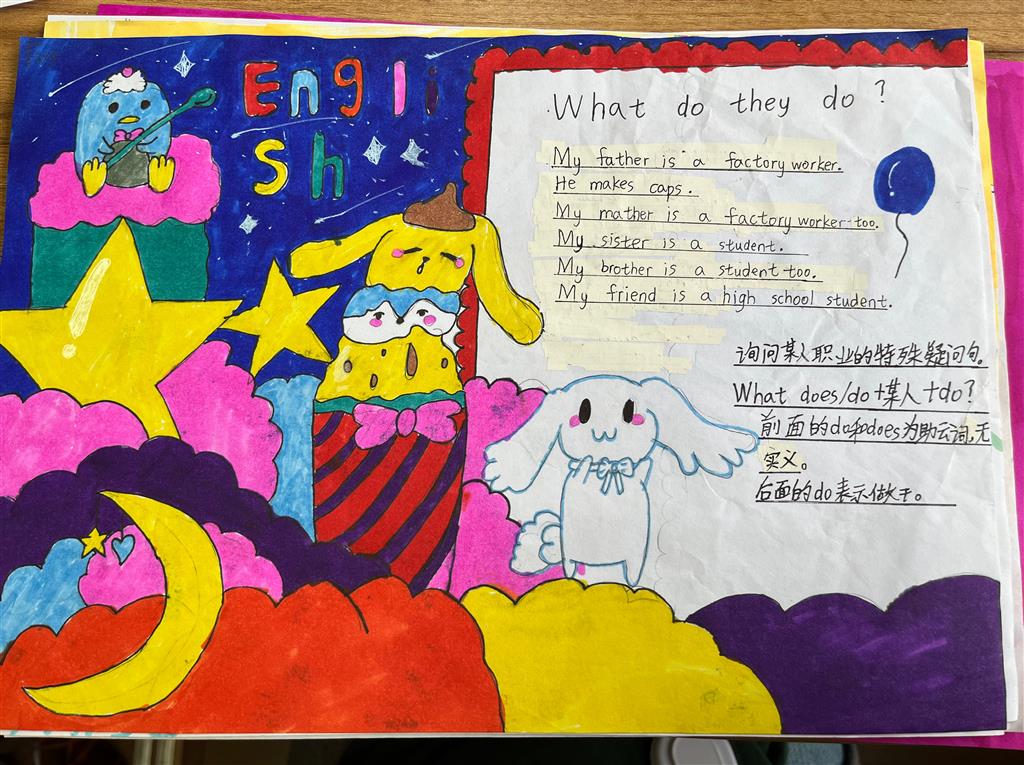 Engli
sh
What do they do?
My father is a factory worker.
He makes caps.
My mather is a factory worker too.
My sister is a student.
My brother is a student too.
My friend is a high school student.
询问某人职业的特殊疑问句。
What does/do+某人+do?
前面的do和does为助动词,无
实义。
后面的do表示做干。